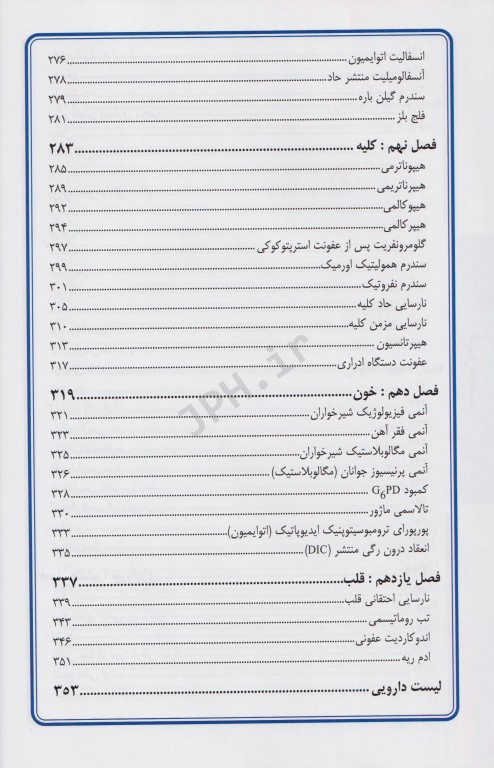 انسفالیت اتوایمیون ........ ۲۷۶
آنسفالومیلیت منتشر حاد ........ ۲۷۸
سندرم گیلن باره ........ ۲۷۹
فلج بلز ........ ۲۸۱
فصل نهم : کلیه ........ ۲۸۳
هیپوناترمی ........ ۲۸۵
هیپرناتریمی ........ ۲۸۹
هیپوکالمی ........ ۲۹۲
هیپرکالمی ........ ۲۹۴
گلومرونفریت پس از عفونت استرپتوکوکی ........ ۲۹۷
سندرم همولیتیک اورمیک ........ ۲۹۹
سندرم نفروتیک ........ ۳۰۱
نارسایی حاد کلیه ........ ۳۰۵
نارسایی مزمن کلیه ........ ۳۱۰
هیپرتانسیون ........ ۳۱۳
عفونت دستگاه ادراری ........ ۳۱۷
فصل دهم : خون ........ ۳۱۹
آنمی فیزیولوژیک شیرخواران ........ ۳۲۱
آنمی فقر آهن ........ ۳۲۳
آنمی مگالوبلاستیک شیرخواران ........ ۳۲۵
آنمی پرنیسیوز جوانان (مگالوبلاستیک) ........ ۳۲۶
کمبود G6PD ........ ۳۲۸
تالاسمی ماژور ........ ۳۳۰
پورپورای ترومبوسیتوپنیک ایدیوپاتیک (اتوایمیون) ........ ۳۳۳
انعقاد درون رگی منتشر (DIC) ........ ۳۳۵
فصل یازدهم : قلب ........ ۳۳۷
نارسایی احتقانی قلب ........ ۳۳۹
تب روماتیسمی ........ ۳۴۳
اندوکاردیت عفونی ........ ۳۴۶
ادم ریه ........ ۳۵۱
لیست دارویی ........ ۳۵۳
JPH.ir